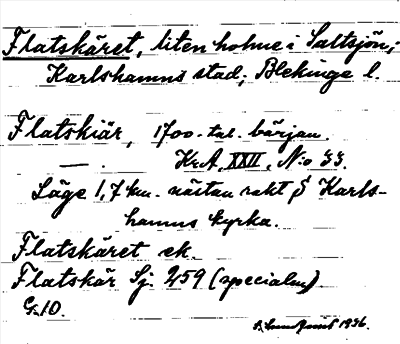 Flatskäret, liten holme i Saltsjön,
Karlshamns stad; Blekinge l.
Flatskiär, 1700-tal. början.
— . Kr.A. XXII. N:o 33.
Läge 1,7 km. nästan rakt S Karls-
hamns kyrka.
Flatskäret ek.
Flatskär Sj. 259 (specialen)
G:10.
1936.